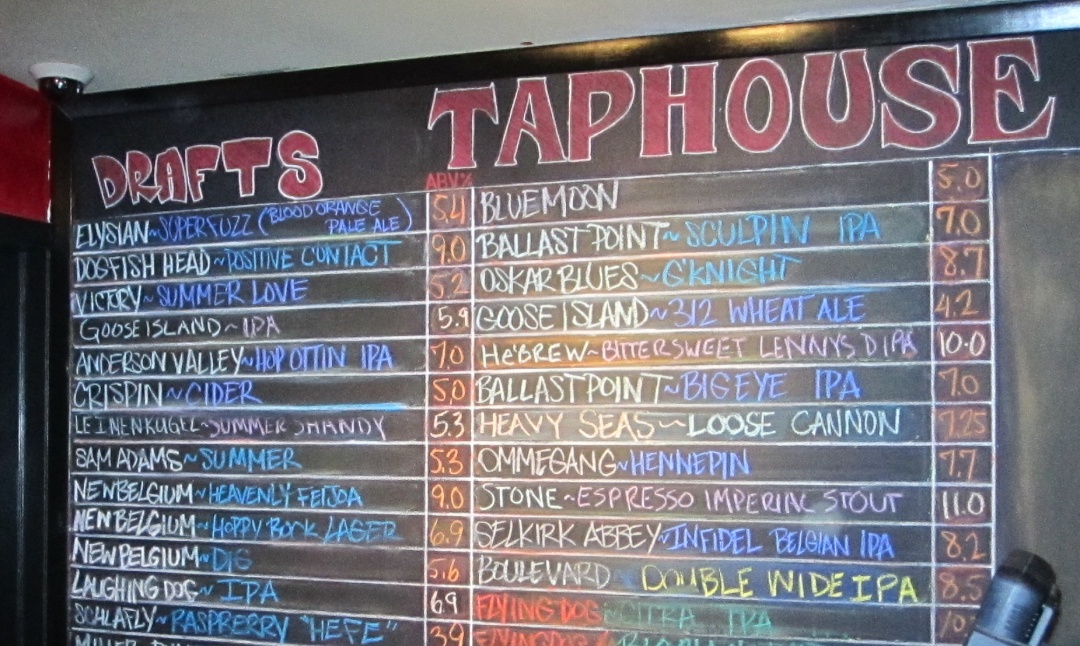 TAPHOUSE
DRAFTS
ABV%
ELYSIAN~SUPERFUZZ (BLOOD ORANGE PALE ALE) 5.4
DOGFISH HEAD~POSITIVE CONTACT 9.0
VICTORY~SUMMER LOVE 5.2
GOOSE ISLAND~IPA 5.9
ANDERSON VALLEY~HOP OTTIN IPA 7.0
CRISPIN~CIDER 5.0
LEINENKUGEL~SUMMER SHANDY 5.3
SAM ADAMS~SUMMER 5.3
NEW BELGIUM~HEAVENLY FEIJOA 9.0
NEW BELGIUM~HOPPY BOCK LAGER 6.9
NEW BELGIUM~DIG 5.6
LAUGHING DOG~IPA 6.9
SCHLAFLY~RASPBERRY "HEFE" 3.9
BLUE MOON 5.0
BALLAST POINT~SCULPIN IPA 7.0
OSKAR BLUES~G'KNIGHT 8.7
GOOSE ISLAND~312 WHEAT ALE 4.2
He'BREW~BITTERSWEET LENNYS DIPA 10.0
BALLAST POINT~BIG EYE IPA 7.0
HEAVY SEAS~LOOSE CANNON 7.25
OMMEGANG~HENNEPIN 7.7
STONE~ESPRESSO IMPERIAL STOUT 11.0
SELKIRK ABBEY~INFIDEL BELGIAN IPA 8.2
BOULEVARD~DOUBLE WIDE IPA 8.5
FLYING DOG~CITRA IPA
FLYING DOG